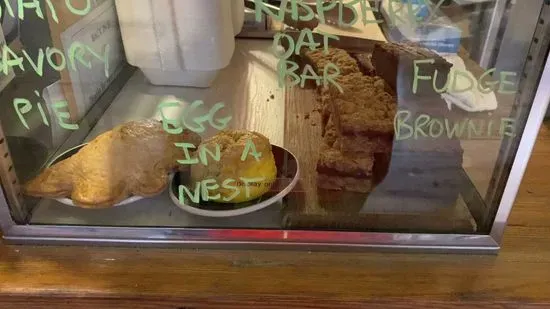 SAVORY
PIE
EGG
IN A
NEST
RASPBERRY
OAT
BAR
FUDGE
BROWNIE